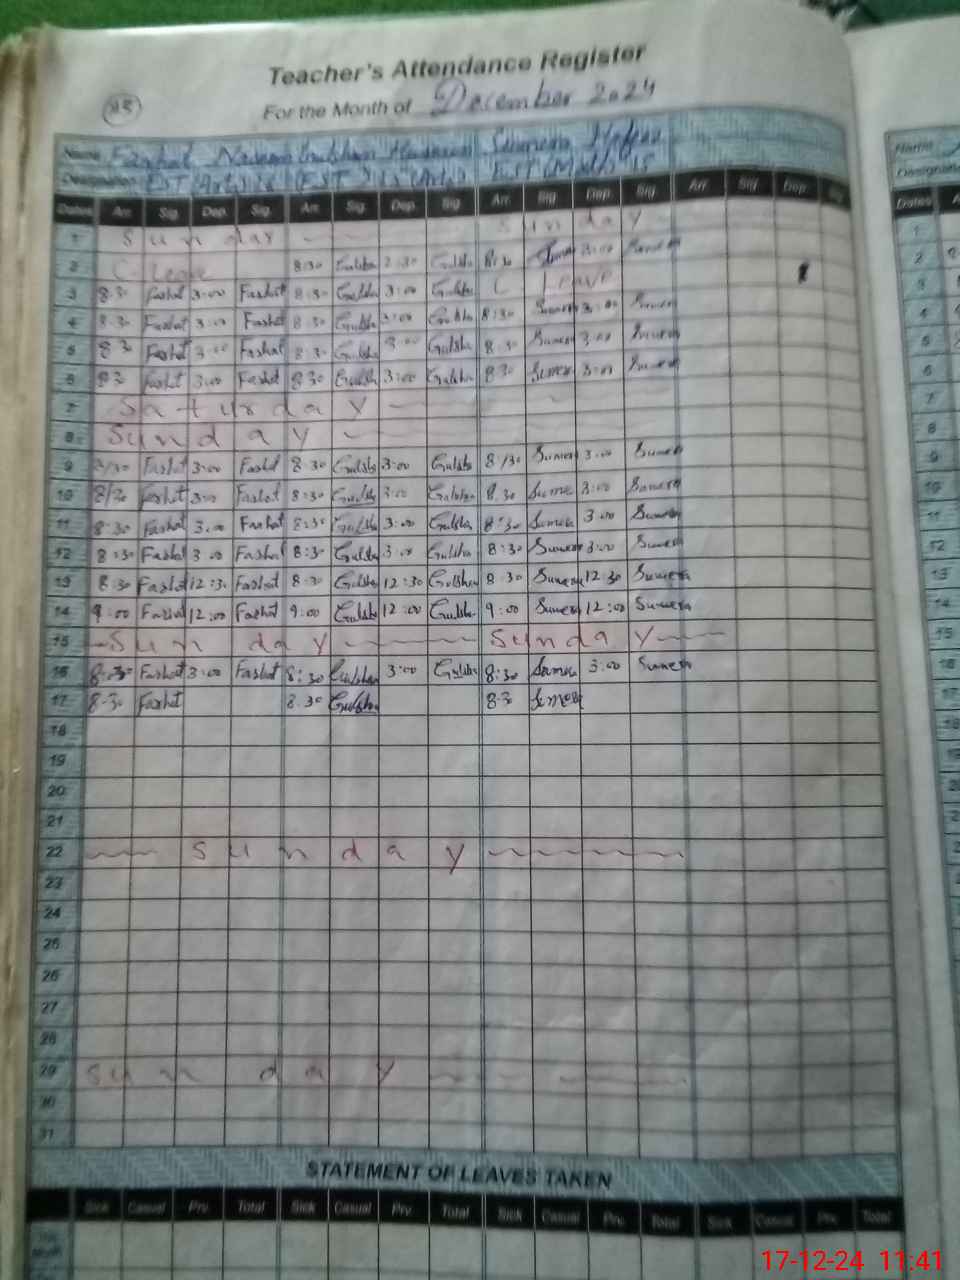 Teacher's Attendance Register
For the Month of December 2024
Name Farhat Naseem Gulshan Sumera
Designation EST (Arts) 15 (EST) 15 (Arts) EST (Math) 15
Dates Arr. Sig. Dep. Sig. Arr. Sig. Dep. Sig. Arr. Sig. Dep. Sig. Arr. Sig. Dep. Sig.
1 Sunday Sunday
2 C. Leave 8:30 Gulsha 2:30 Gulsha 8:30 Sumera 3:00 Sumera
3 8.30 Farhat 3:00 Farhat 8:30 Gulsha 3:00 Gulsha C Leave
4 8.30 Farhat 3:00 Farhat 8:30 Gulsha 3:00 Gulsha 8:30 Sumera 3:00 Sumera
5 8 30 Farhat 3:00 Farhat 8:30 Gulsha 3:00 Gulsha 8:30 Sumera 3:00 Sumera
6 8 30 Farhat 3:00 Farhat 8 30 Gulsha 3:00 Gulsha 8 30 Sumera 3:00 Sumera
7 Saturday
8 Sunday
9 8/30 Farhat 3:00 Farhat 8:30 Gulsha 3:00 Gulsha 8/30 Sumera 3:00 Sumera
10 8/30 Farhat 3:00 Farhat 8:30 Gulsha 3:00 Gulsha 8.30 Sumera 3:00 Sumera
11 8:30 Farhat 3:00 Farhat 8:30 Gulsha 3:00 Gulsha 8:30 Sumera 3:00 Sumera
12 8:30 Farhat 3:00 Farhat 8:30 Gulsha 3:00 Gulsha 8:30 Sumera 3:00 Sumera
13 8:30 Farhat 12:30 Farhat 8:30 Gulsha 12:30 Gulshan 8 30 Sumera 12:30 Sumera
14 9:00 Farhat 12:00 Farhat 9:00 Gulsha 12:00 Gulsha 9:00 Sumera 12:00 Sumera
15 Sunday Sunday
16 8:30 Farhat 3:00 Farhat 8:30 Gulshan 3:00 Gulsha 8:30 Sumera 3:00 Sumera
17 8-30 Farhat 8.30 Gulsha 8-30 Sumera
18
19
20
21
22 Sunday
23
24
25
26
27
28
29 Sunday
30
31
STATEMENT OF LEAVES TAKEN
Sick Casual Prv. Total Sick Casual Prv. Total Sick Casual Prv. Total Sick Casual Prv. Total
17-12-24 11:41